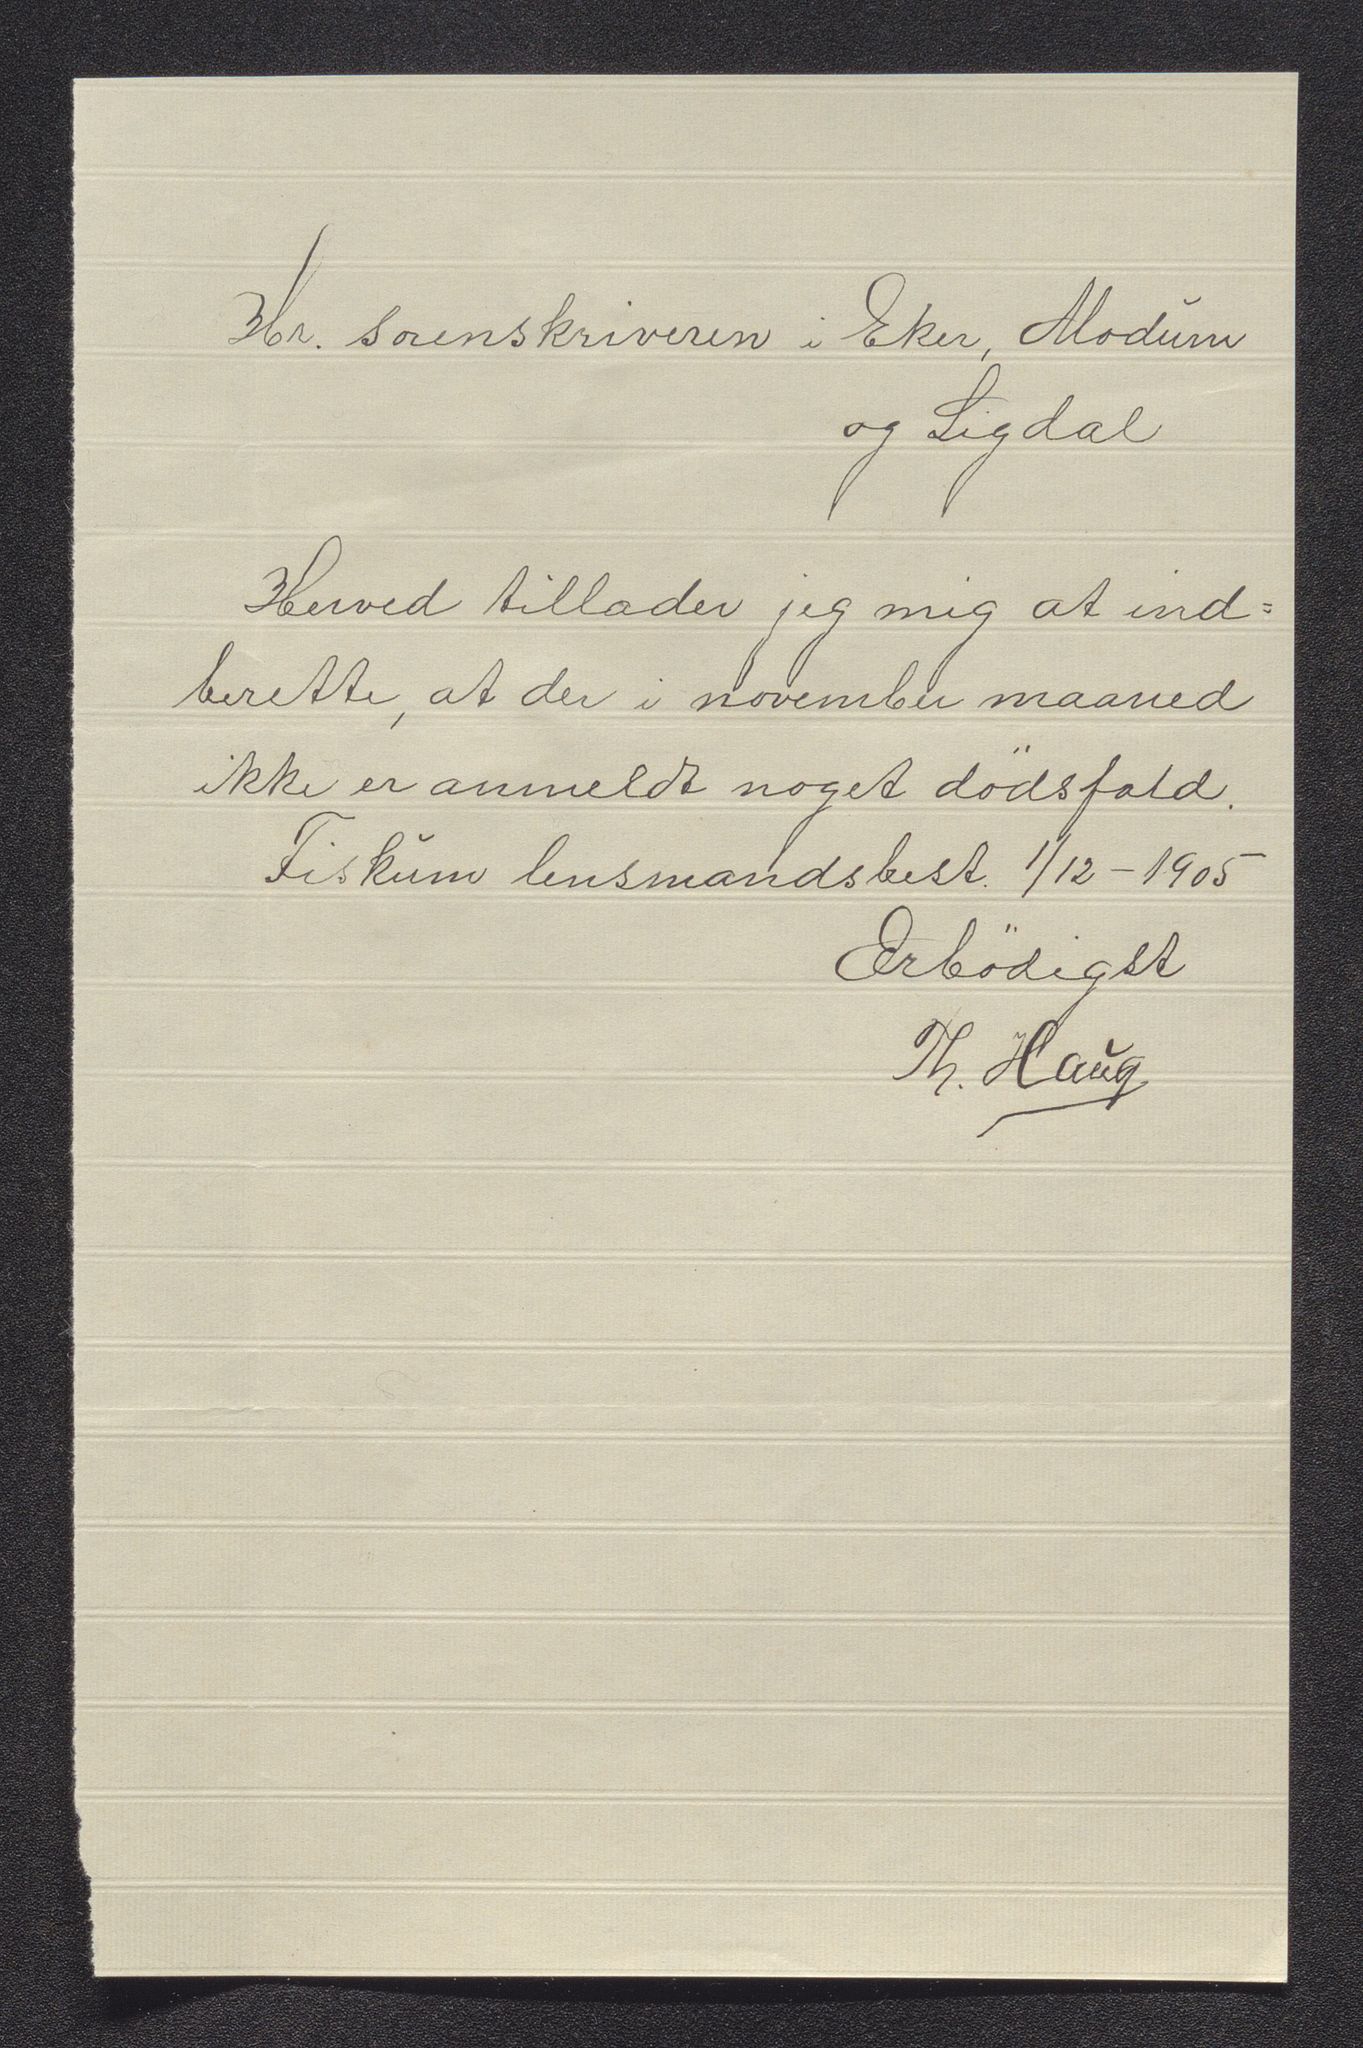 Hr. sorenskriveren i Eker, Modum
og Sigdal
Herved tillader jeg mig at ind=
berette, at der i november maaned
ikke er anmeldt noget dödsfald.
Fiskum lensmandsbest. 1/12 - 1905
Ærbödigst
Th. Haug